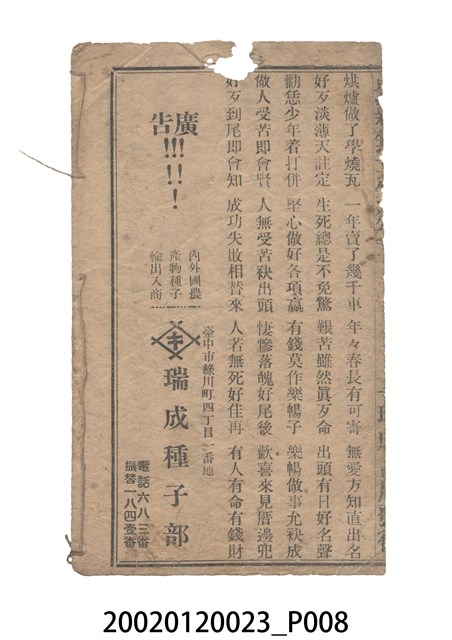 烘爐做了學燒瓦 一年賣了幾千車 年々春長有可寄 無愛方知直出名
好歹淡薄天註定 生死總是不免驚 艱苦雖然眞歹命 出頭有日好名聲
勸恁少年着打併 堅心做好各項贏 有錢莫作樂暢子 樂暢做事尤袂成
做人受苦即會賢 人無受苦袂出頭 悽慘落魄好尾後 歡喜來見厝邊兜
好歹到尾即會知 成功失敗相替來 人若無死好佳再 有人有命有錢財
廣告!!!!!!
內外國農
產物種子
輸出入商
臺中市綠川町四丁目二番地
キ
瑞成種子部
電話六八三番
振替一八四壹番
20020120023_P008